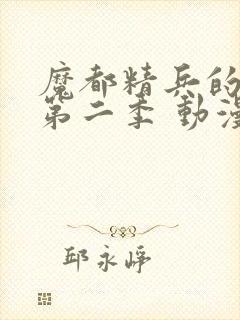 魔都精兵的
第二季 動漫
邱永崢